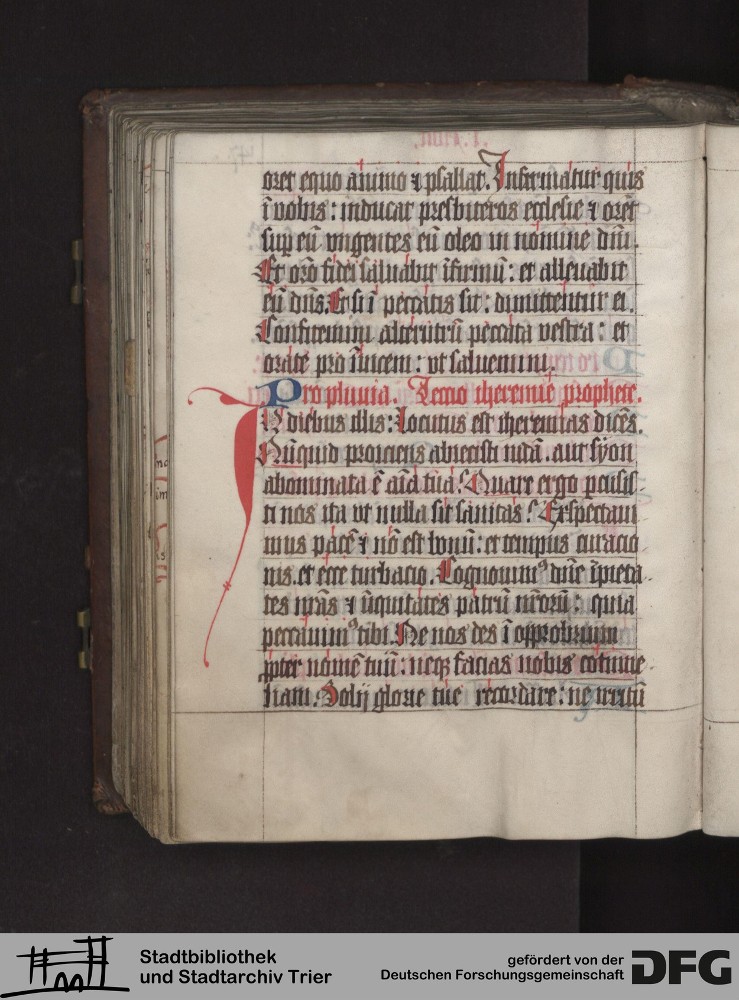 oret equo animo ⁊ psallat. Infirmatur quis
ī vobis : inducat presbiteros ecclesie ⁊ orēt
sup eū vngentes eū oleo in nomine dni.
Et orō fidei saluabit īfirmū : et alleuabit
eū dns. Et si ī peccatis sit : dimittentur ei.
Confitemini alterutrū peccata vestra : et
orate pro īuicem : vt saluemini.
Pro pluuia. Lectio iheremie prophete.
IN diebus illis : Locutus est iheremias dicēs.
Nūquid proiciens abiecisti iudā. aut syon
abominata ē aīa tua? Quare ergo pcussis-
ti nos ita vt nulla sit sanitas? Exspectaui
mus pacē ⁊ nō est bonū : et tempus curacio
nis. et ecce turbacio. Cognouimꝰ dne īpieta-
tes nras ⁊ īiquitates patrū nrorū : quia
peccauimꝰ tibi. Ne nos des ī opprobrium
ꝓpter nomē tuū : neqꝫ facias nobis cōtume-
liam. Solij glorie tue recordare : ne irritū
Stadtbibliothek
und Stadtarchiv Trier
gefördert von der
Deutschen Forschungsgemeinschaft
DFG